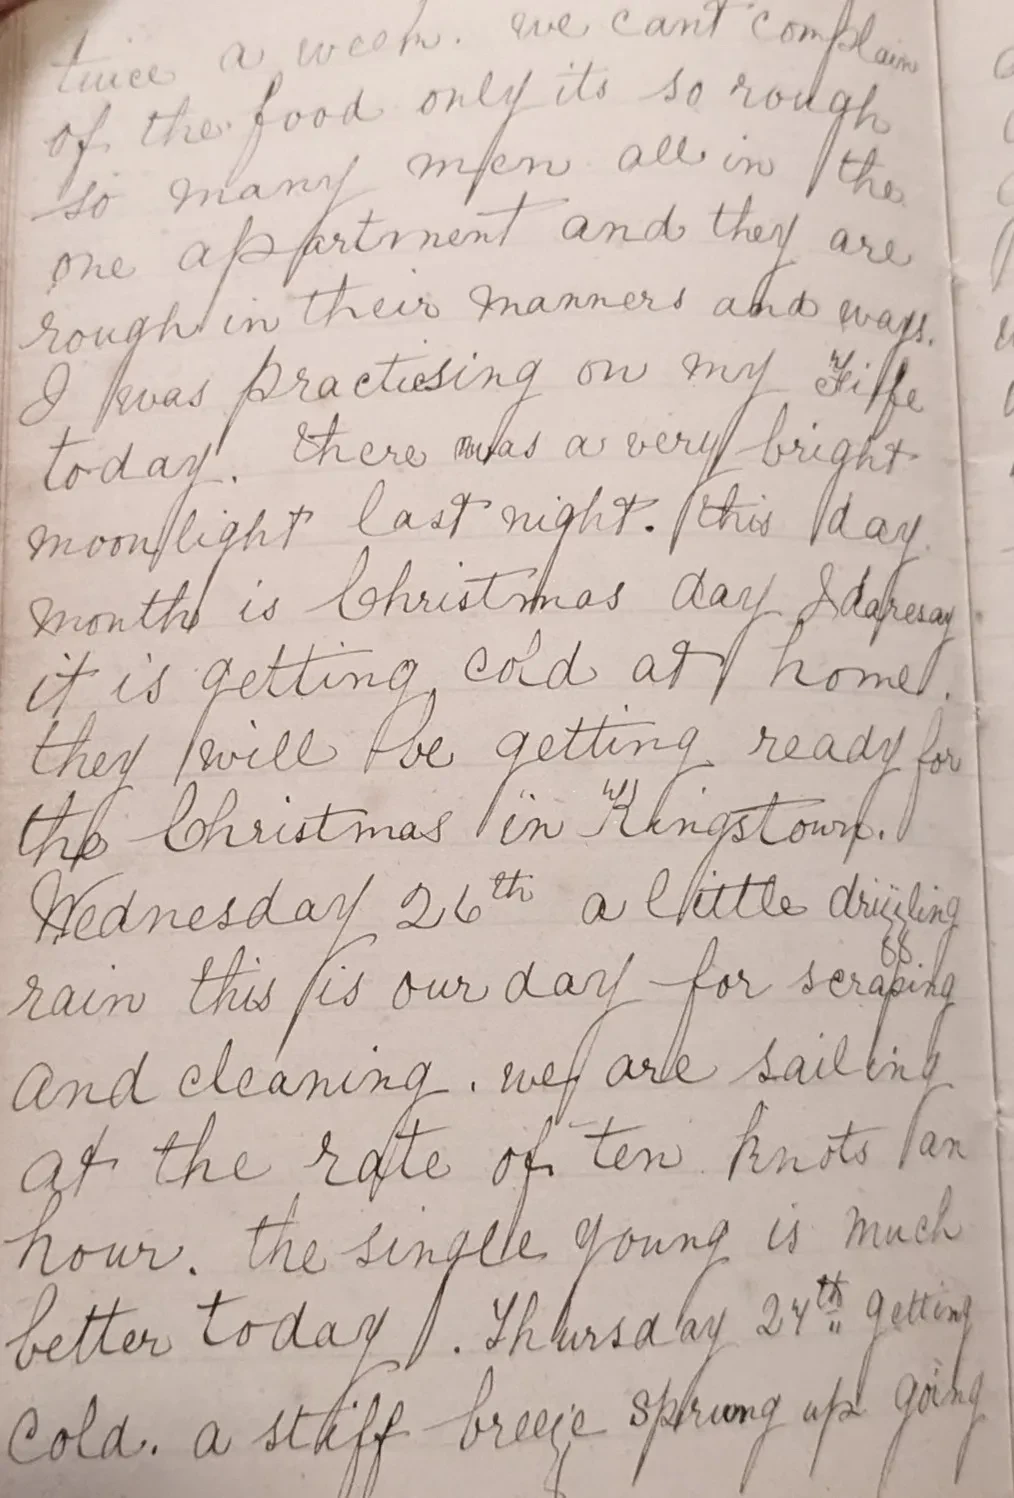 twice a week. we cant complain
of the food only its so rough
so many men all in the
one appartment and they are
rough in their manners and ways.
I was practicsing on my Fiffe
today. there was a very bright
moonlight last night. this day
month is Christmas day I daresay
it is getting cold at home.
they will be getting ready for
the Christmas in Kingstown.
Wednesday 26th a little drizzling
rain this is our day for scraping
and cleaning. we are sailing
at the rate of ten knots an
hour. the single young is much
better today. Thursday 27th getting
cold. a stiff breeze sprung up going